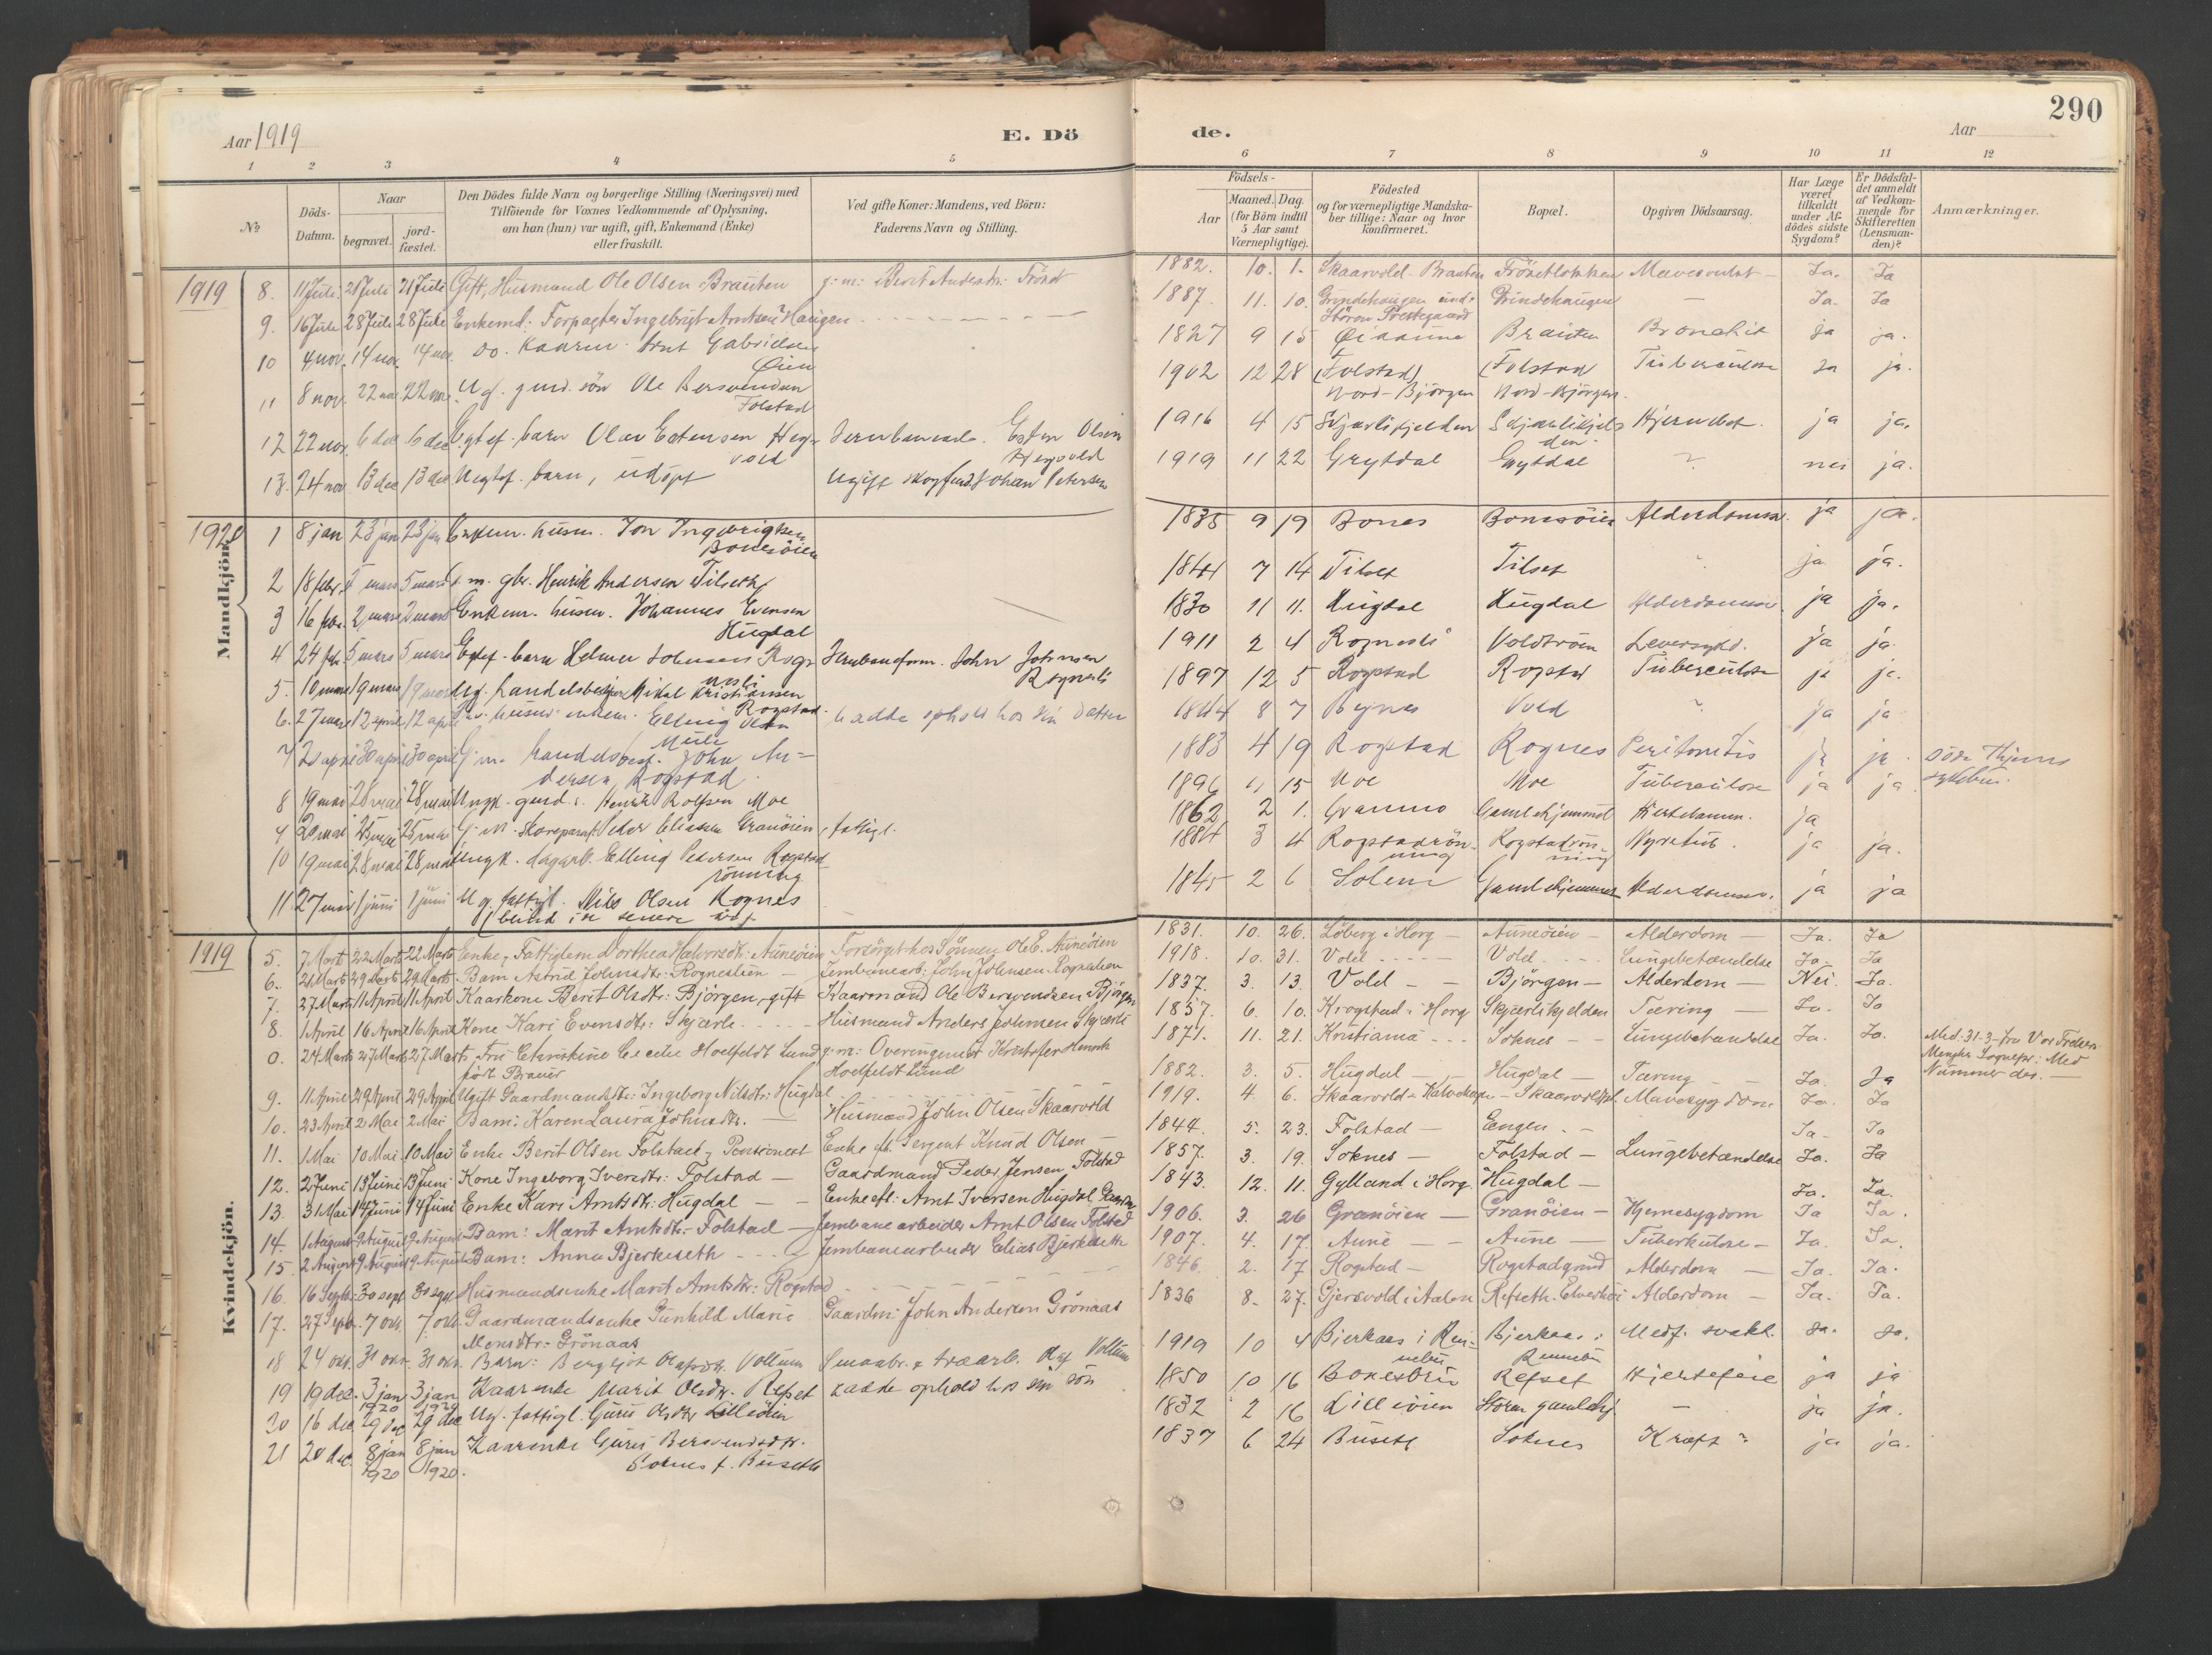 290
Aar 1919
E. Dö
de.
Aar
1 2 3 4 5 6 7 8 9 10 11 12
No
Döds-Datum.
Naar
begravet.
jord-fæstet.
Den Dödes fulde Navn og borgerlige Stilling (Næringsvei) med
Tilföiende for Voxnes Vedkommende af Oplysning,
om han (hun) var ugift, gift, Enkemand (Enke)
eller fraskilt.
Ved gifte Koner: Mandens, ved Börn:
Faderens Navn og Stilling.
Födsels-
Aar
Maaned. Dag.
(for Börn indtil
5 Aar samt
Værnepligtige).
Födested
og for værnepligtige Mandska-
ber tillige: Naar og hvor
konfirmeret.
Bopæl.
Opgiven Dödsaarsag.
Har Læge
været
tilkaldt
under Af-
dödes sidste
Sygdom?
Er Dödsfal-
det anmeldt
af Vedkom-
mende for
Skifteretten
(Lensman-
den)?
Anmærkninger.
Mandkjön.
1919 8. 11 Juli 21 Juli 21 Juli Gift, Husmand Ole Olsen Brauten g: m: Berit Andersdtr: Fröset 1882. 10. 1. Skaarvold Brauten Frösetlökken Ja. Ja
9. 16 Juli 28 Juli 28 Juli Enkemd: Forpagter Ingebrigt Arntsen Haugen 1887. 11. 10. Grindehaugen und: Stören Prestegaard Grindehaugen — Ja. Ja
10 4 nov. 14 nov. 14 nov. do. Kaarm. Arnt Gabrielsen Öien 1827 9 15 Brauten Bronchit ja ja.
11 8 nov. 22 nov 22 nov. Ug. gmd. sön Ole Bersvendsen Folstad 1902 12 28 (Folstad) Nord-Björgen (Folstad Nord-Björgen. Tuberculose ja ja.
12 22 nov. 6 dec 6 dec Egtef. barn Olav Estensen Hegvold Jernbanearb. Esten Olsen Hegvold 1916 4 15 Skjærlikjelden Skjærlikjelden ja ja.
13. 24 nov 13 dec 13 dec Uegtef. barn, udöpt Ugift skogfuld. Johan Petersen 1919 11 22 Grytdal Grytdal ? nei ja.
1920 1 8 jan 23 jan 23 jan Enkem. husm. Jon Ingebrigtsen Bonesöien 1835 9 19 Bones Bonesöien Alderdomssv. ja ja.
2 18 febr. 5 mars 5 mars G. m. gbr. Henrik Andersen Tilseth 1844 7 14 Tilset Tilset ? ja ja.
3 16 febr. 2 mars 2 mars Enkem. husm. Johannes Evensen Hugdal 1830 11 11. Hugdal Hugdal Alderdomssv. ja ja.
4 24 feb 5 mars 5 mars Egtef. barn Helmer Johnsen Rognesli Jernbaneform. John Johnsen Rognesli 1911 2 4 Rognesli Voldtröen Leversygd. ja ja.
5. 10 mars 19 mars 19 mars Ug. handelsbetjen Mikal Kristiansen Rogstad. 1897 12 5 Rogstad Rogstad Tuberculose ja ja.
6. 27 mars 12 april 12 april husm. enkem. Elling Olsen Meile hadde ophold hos sin datter 1844 8 7 Bejnes Vold ? ja ja
7 20 april 30 april 30 april G. m. handelsbest. John Andersen Rogstad. 1883 4 19 Rogstad Rognes Peritonitis ja ja.
8 19 mai 28 mai 28 mai Ungk. gmd. s. Henrik Rolfsen Moe 1896 15 Moe Moe Tuberculose ja ja
9 20 mai 25 mai 25 mai G. m. Skoreparat. Peder Eliassen Granöien, fattigl. 1862 2 1. Gramo Gamlehjemmet Hertelamm. ja
10 19 mai 28 mai 28 mai Ungk. dagarb. Elling Pedersen Rogstadrönning 1884 3 4 Rogstadrönning Rogstadrönning Nyretub. ja ja.
11 27 mai 1 juni 1 juni Ug. fattigl. Nils Olsen Rognes (blind i de senere aar) 1845 2 6 Solem Gamlehjemmet Alderdomssv. ja ja
Kvindekjön.
1919 5. 7 Mart 22 Marts 22 Marts Enke, Fattiglem Dorthea Halvorsdtr: Auneöien Forsörgt hos Sönnen Ole E. Auneöien 1831. 10. 26. Löberg i Horg — Auneöien — Alderdom Ja. Ja
6. 21 Marts 29 Marts 29 Marts Barn Astrid Johnsdtr: Rogneslien — Jernbanearb: John Johnsen Rogneslien 1918. 10. 31. Vold Vold Lungebetændelse Ja Ja
7. 27 Marts 11 April 11 April Kaarkone Berit Olsdtr: Björgen, gift Kaarmand Ole Bersvendsen Björgen 1837. 3. 13. Vold — Björgen — Alderdom — Nei. Ja.
8. 1 April 16 April 16 April Kone Kari Evensdtr: Skjærli Husmand Anders Johnsen Skjærli 1857. 6. 10. Krogstad i Horg Skjærlikjelden Tæring — Ja. Ja
0. 24 Marts 27 Marts 27 Marts Fru Cecilie Hoelfeldt Lund född Brauer g: m: Overingeniör Kristofer Henrik Hoelfeldt Lund 1871. 11. 21. Kristiania Soknes — Lungebetændelse Ja. Ja. Med. 31-3- fra Vor Frelsers Menighs Sognepr: Med Nummer der.
9. 11 April 29 April 29 April Ugift Gaardmandsdtr: Ingeborg Nilsdtr: Hugdal 1882. 3. 5. Hugdal — Hugdal — Tæring Ja. Ja
10. 23 April 2 Mai 2 Mai Barn: Karen Laura Johnsdtr. Husmand John Olsen Skaarvold 1919. 4. 6. Skaarvold — Ja. Ja
11. 1 Mai 10 Mai 10 Mai Enke Berit Olsen Folstad, Pensionert Enke eft. Sergent Knud Olsen — 1844. 5. 23. Folstad — Engen. — Ja. Ja
12. 2 Juni 13 Juni 13 Juni Kone Ingeborg Iversdtr: Folstad — Gaardmand Peder Jensen Folstad 1857. 3. 19. Soknes — Folstad — Lungebetændelse Ja. Ja
13. 31 Mai 14 Juni 14 Juni Enke Kari Arntsdtr: Hugdal — Enke eft: Arnt Iversen Hugdal 1843. 12. 11. Gylland i Horg. Hugdal — Ja. Ja.
14. 1 August 9 August 9 August Barn: Marit Arntsdtr: Folstad — Jernbanearbeider Arnt Olsen Folstad 1906. 3. 26 Granöien — Granöien — Hjernesygdom Ja Ja.
15 2 August 9 August 9 August Barn: Anna Bjerkeseth Jernbanearbeider Elias Bjerkeseth 1907. 4. 17. Aune — Aune — Tuberkulose — Ja. Ja.
16. 16 Septb: 30 sept 30 sept Husmandsenke Marit Arntsdtr: Rogstad 1846. 2. 17 Rogstad — Rogstadgrind Alderdom — Ja. Ja.
17. 27 Sepb. 7 okt. 7 okt. Gaardmandsenke Gunhild Marie Monsdtr. Grönaas Gaardm: John Andersen Grönaas 1836 8. 27. Gjersvold i Aalen Refseth. Alderdom — Ja. Ja.
18 24 okt. 31 okt. 31 okt. Barn: Bergljot Olafsdtr. Vollum Smaabr. & træarb. Olaf Vollum 1919 10 4 Bjerkaas i Rennebu Bjerkaas i Rennebu Medf. svakh. ja. ja.
19 19 dec. 3 jan 1920 3 jan 1920 Kaarenke Marit Olsdtr. Refset hadde ophold hos sin sön 1850 10 16 Refset Hjertefeil ja ja
20 16 dec 29 dec 29 dec Ug. fattigl. Guru Olsdtr Lilleöien 1832 2 16 Lilleöien Stören gamlehj. — ja ja.
21 20 dec. 8 jan 1920 8 jan 1920. Kaarenke Guru Bersvendsdtr. Soknes f. Buseth 1837 6 24 Buseth Soknes Kræft ? ja ja.